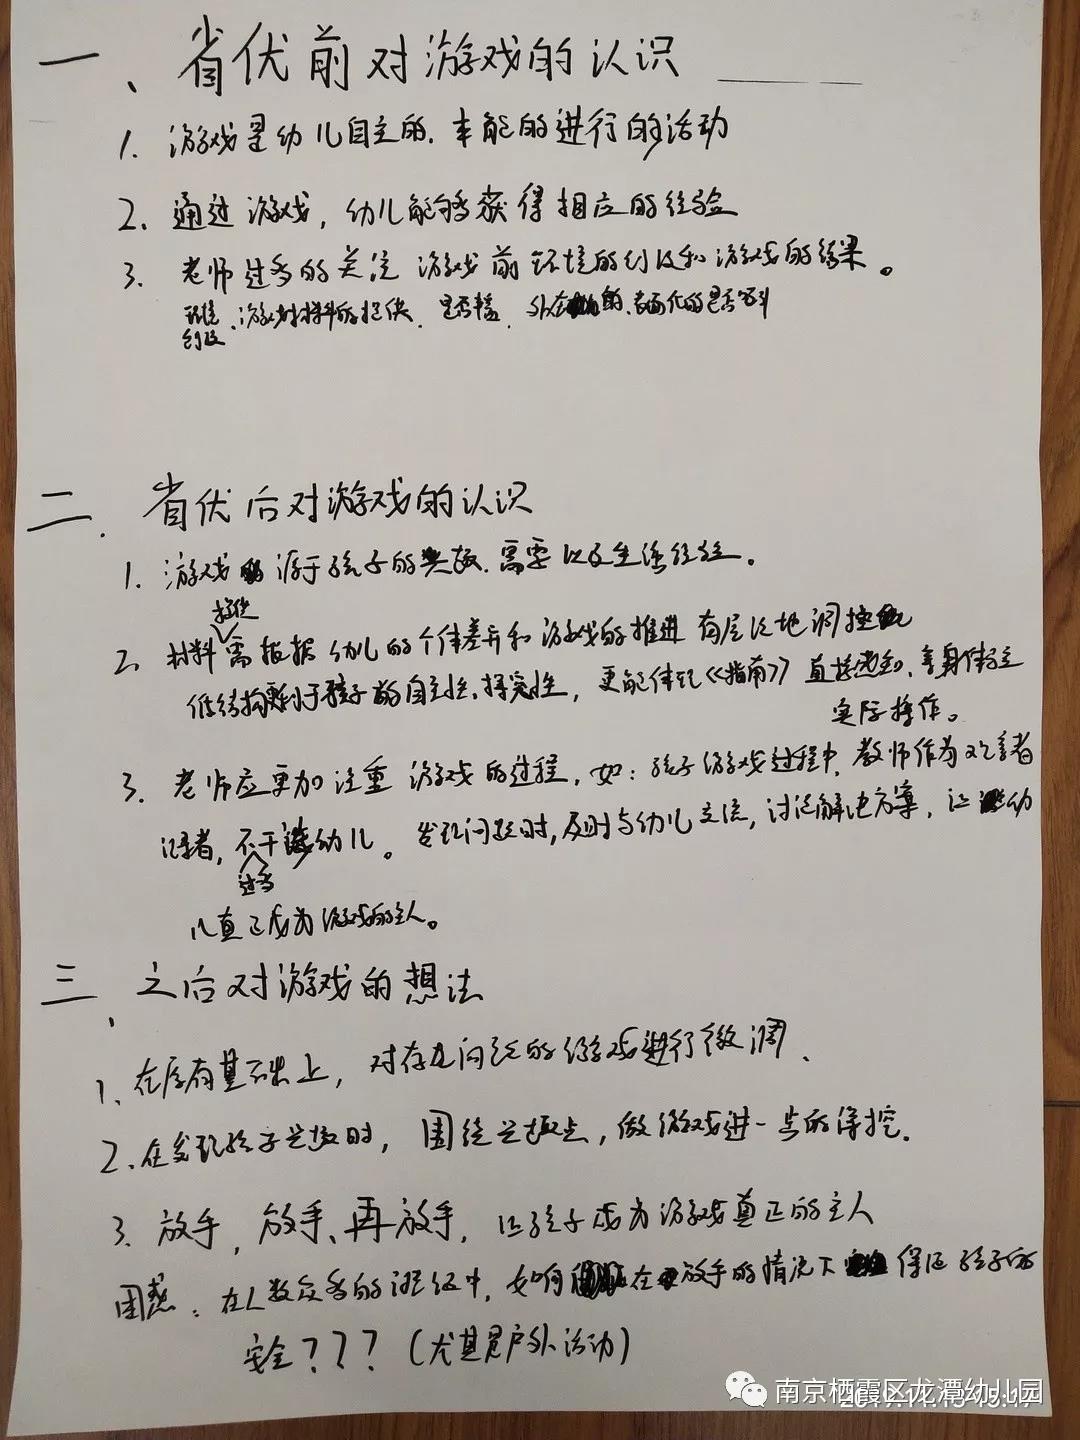 一、省优前对游戏的认识
1. 游戏是幼儿自主的.本能的进行的活动
2. 通过游戏，幼儿能够获得相应的经验
3. 老师过多的关注 游戏前环境的创设和游戏的结果。
环境创设、游戏材料的提供.是否丰富.外在的、表面化的是否
二.省优后对游戏的认识
1. 游戏源于孩子的兴趣.需要以及生活经验。
提供
2. 材料需根据幼儿的个体差异和游戏的推进有层次地调控
低结构更利于孩子的自主性.探究性，更能体现《指南》直接感知、亲身体验
实际操作。
3. 老师应更加注重 游戏的过程，如：孩子游戏过程中.教师作为观察者
记录者，不干涉幼儿。发现问题时,及时与幼儿交流，讨论解决方案，让幼
过多
儿真正成为游戏的主人。
三、之后对游戏的想法
1、在原有基础上，对存在问题的游戏进行微调、
2、在发现孩子兴趣时，围绕兴趣点，做游戏进一步的深挖.
3. 放手，放手、再放手，让孩子成为游戏真正的主人
困惑：在人数众多的班级中，如何在放手的情况下保证孩子的
安全？？？（尤其是户外活动）
南京栖霞区龙潭幼儿园